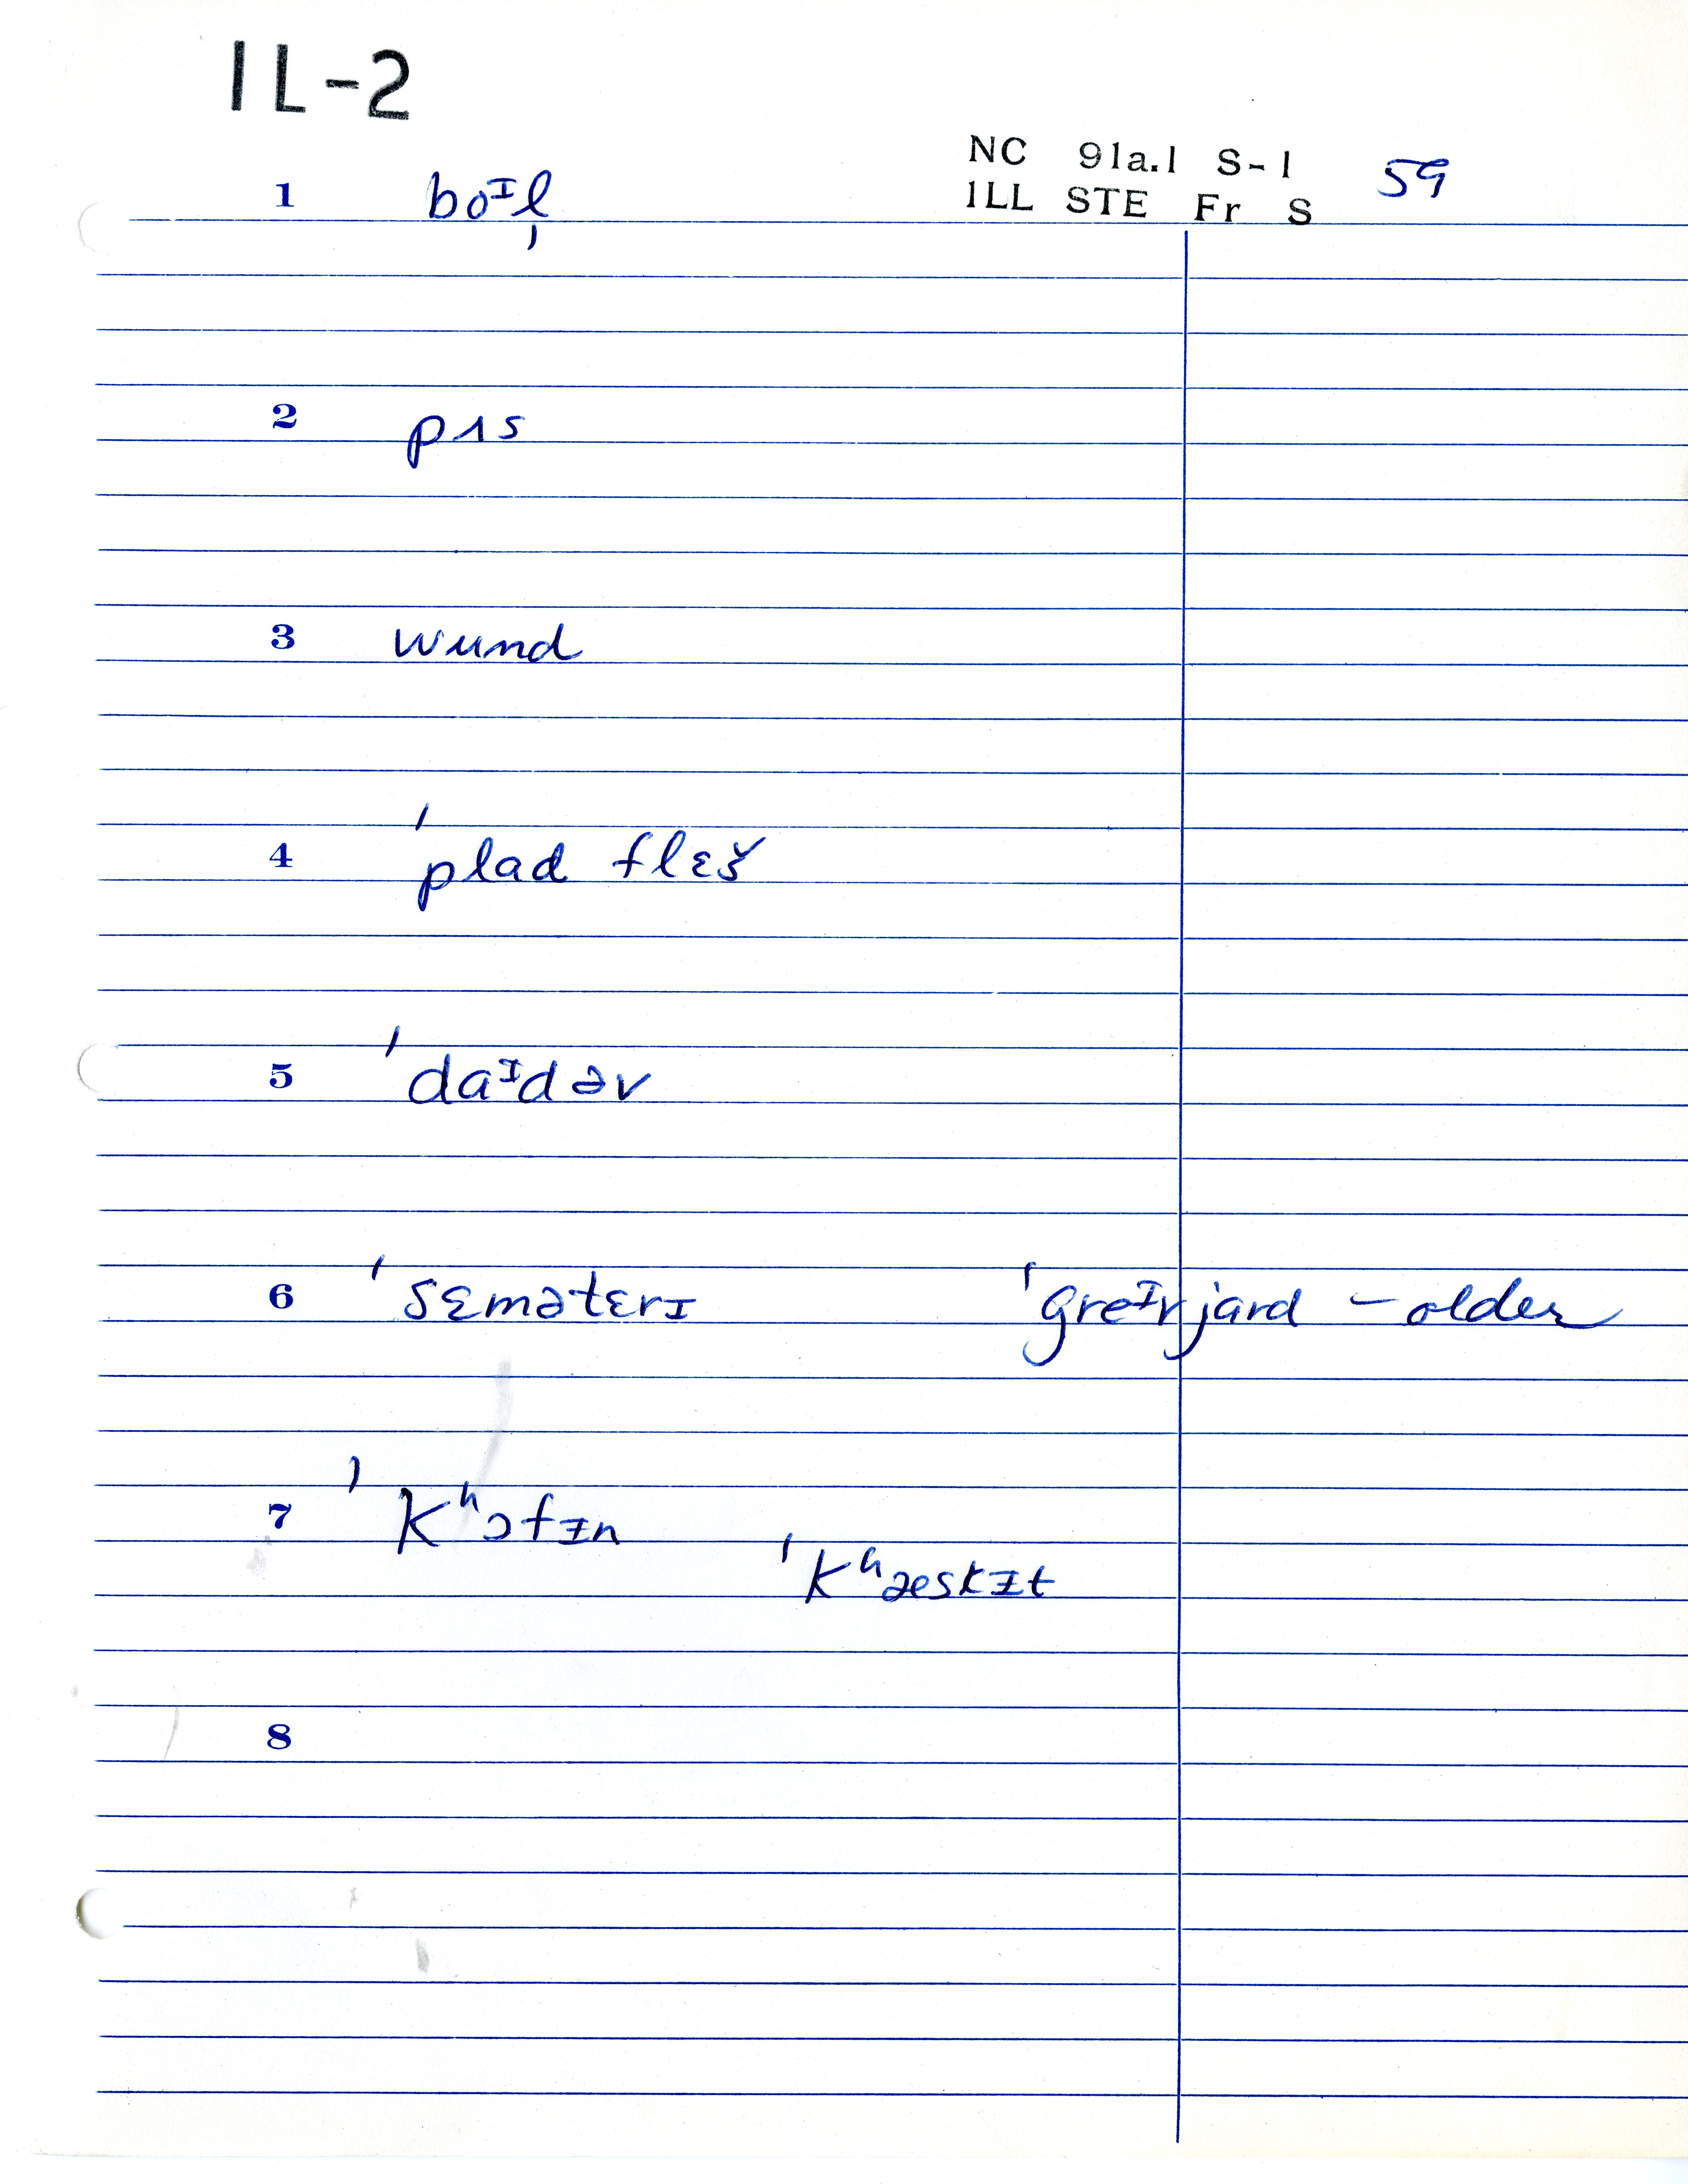 IL-2
NC 91a.1 S-1 59
ILL STE Fr S
1 boᶦl̩
2 pʌs
3 wund
4 ˈplad flɛš
5 ˈdaᶦdəv
6 ˈsɛmətɛrɪ ˈgreᶦvjard – older
7 ˈkʰɔfɪn
ˈkʰæskɪt
8